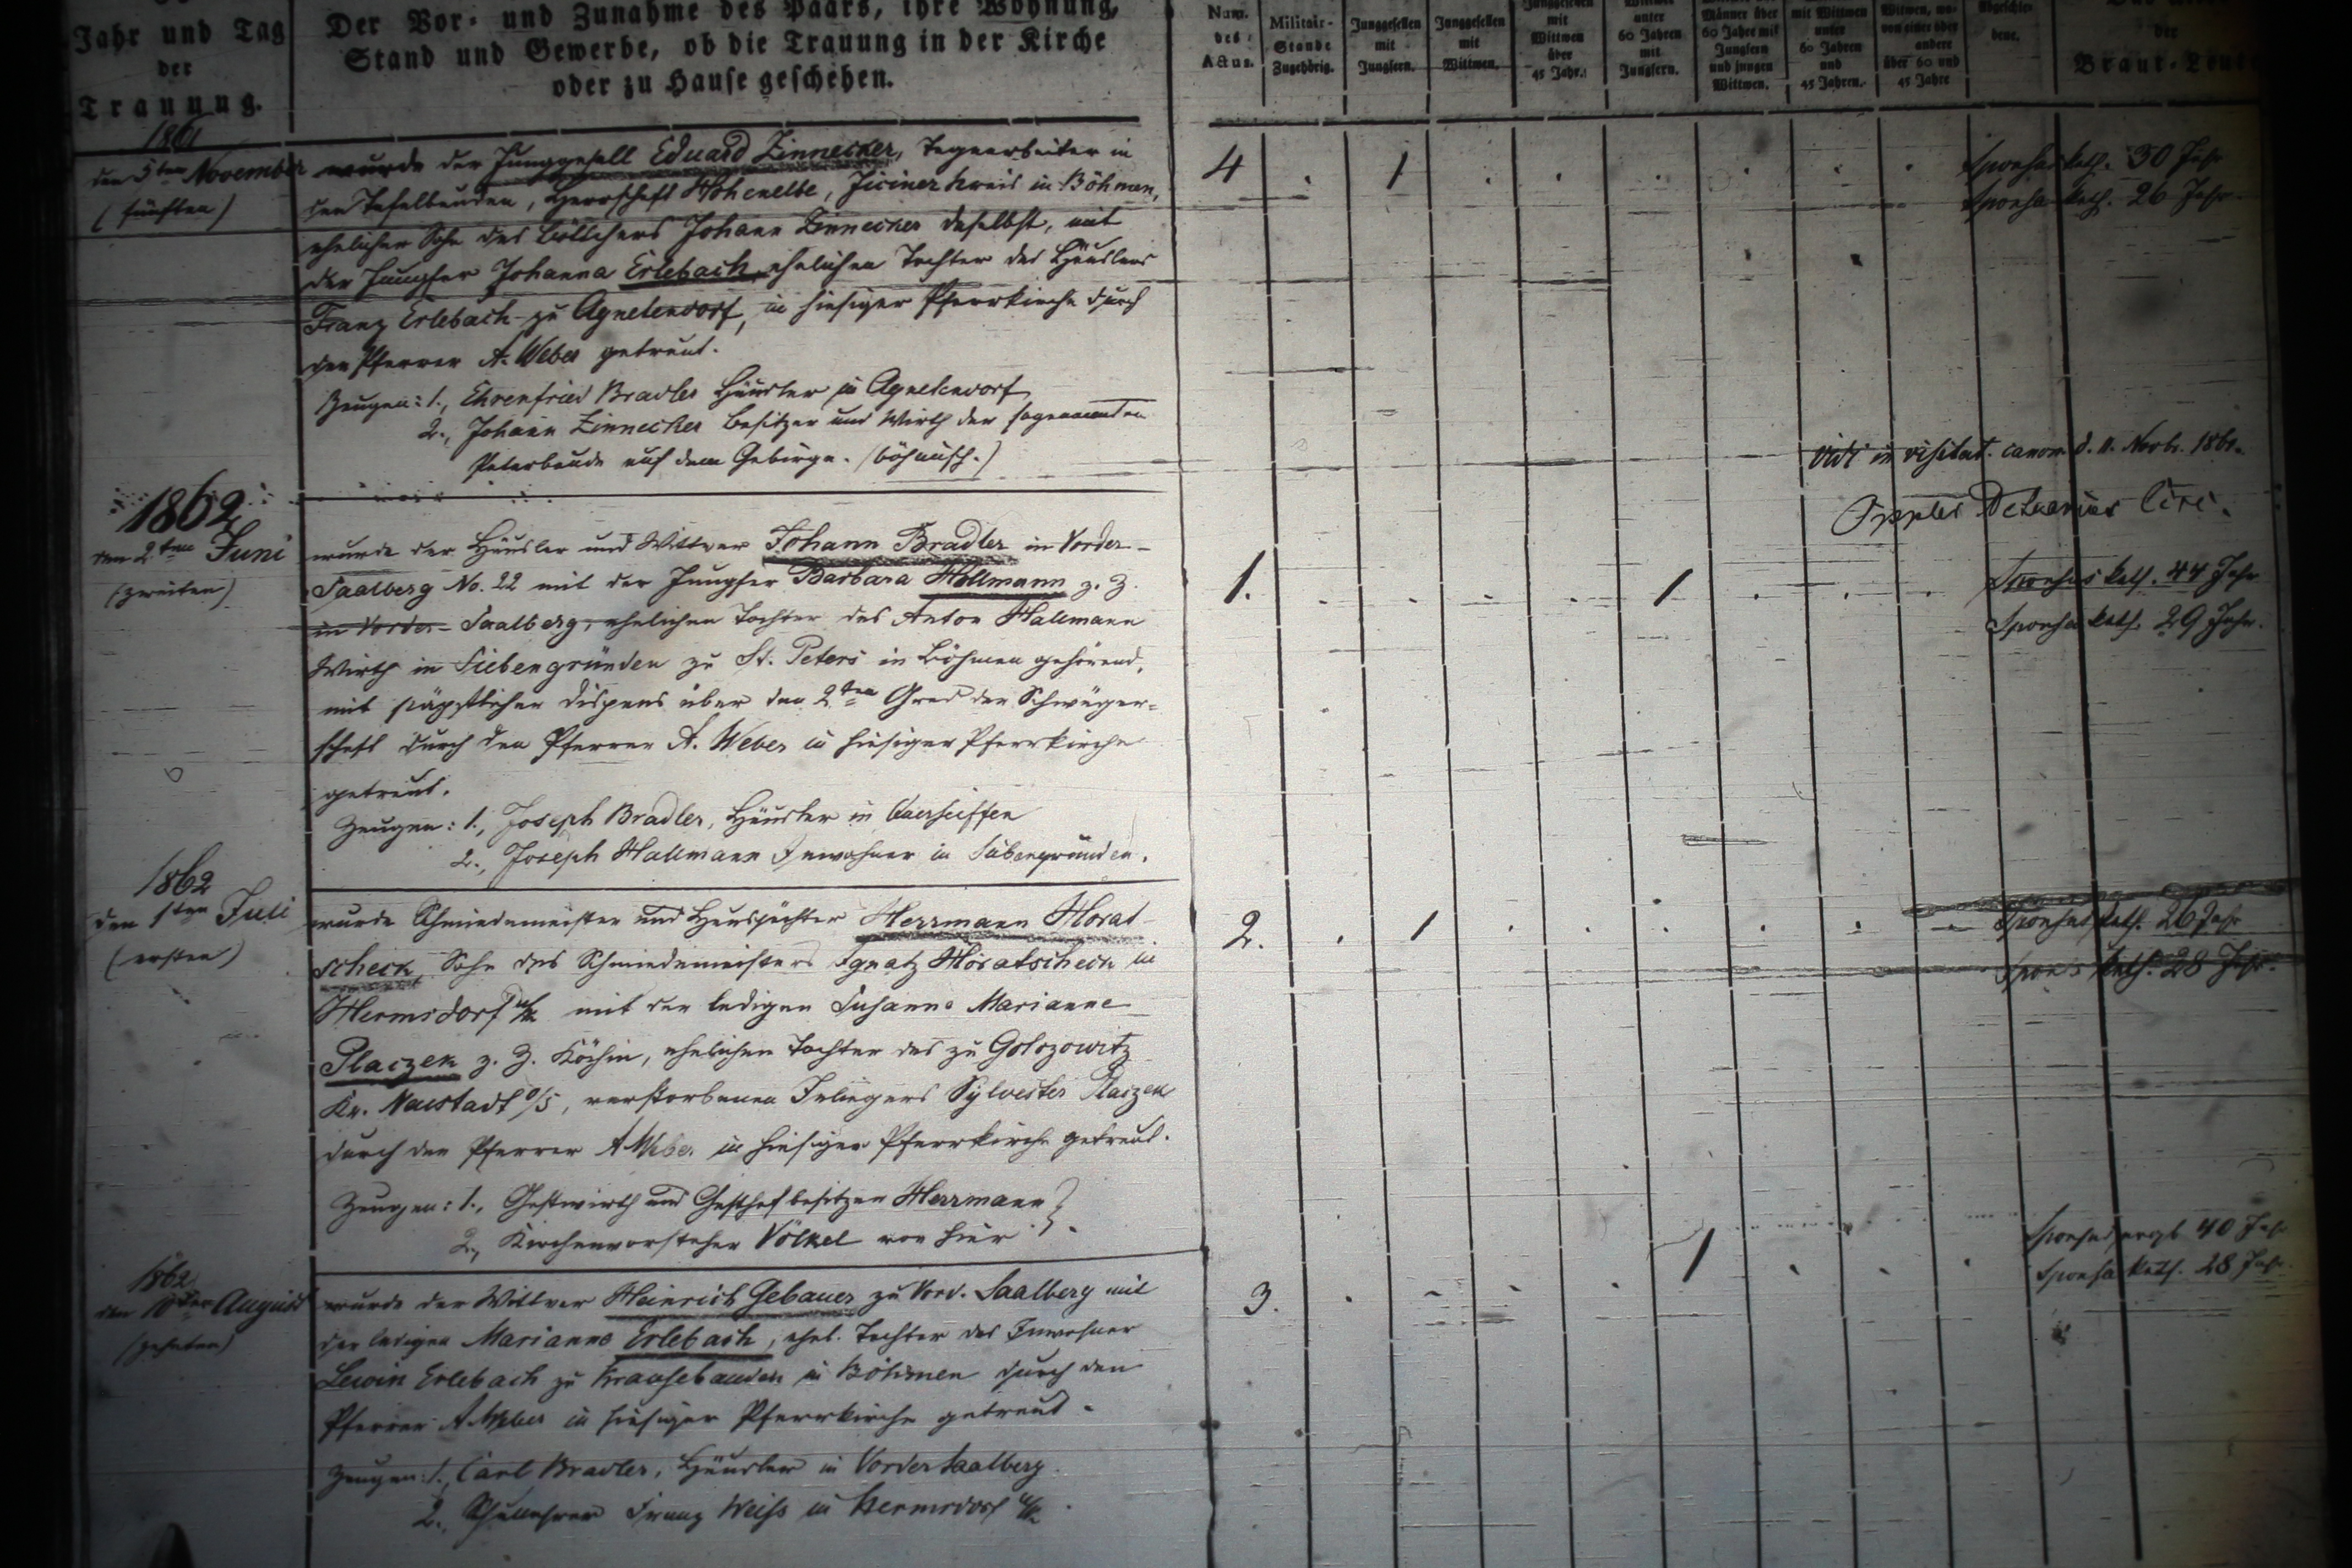 Jahr und Tag
der
Trauung.
Der Vor- und Zunahme des Paars, ihre Wohnung,
Stand und Gewerbe, ob die Trauung in der Kirche
oder zu Hause geschehen.
Num.
des
Actus.
Militair-
Stande
Zugehörig.
Junggesellen
mit
Jungfern.
Junggesellen
mit
Wittwen.
Junggesellen
mit
Wittwen
über
45 Jahr.
unter
60 Jahren
mit
Jungfern.
Männer über
60 Jahre mit
Jungfern
und jungen
Wittwen.
mit Wittwen
unter
60 Jahren
und
45 Jahren.
Witwen, wo-
von einer oder
andere
über 60 und
45 Jahre
Abgeschie-
dene.
der
Braut-Leute
1861
den 5ten November
(fünften)
wurde der Junggesell Eduard Zinnecker, Tagearbeiter in
den Tafelbauden, Herrschaft Hohenelbe, Jiciner Kreis in Böhmen,
ehelicher Sohn des Böttchers Johann Zinnecker daselbst, mit
der Jungfer Johanna Erlebach, ehelichen Tochter des Häuslers
Franz Erlebach zu Agnetendorf, in hiesiger Pfarrkirche durch
den Pfarrer A. Weber getraut.
Zeugen: 1., Ehrenfried Bradler Häusler in Agnetendorf
2., Johann Zinnecker Besitzer und Wirth der sogenannten
Peterbaude auf dem Gebirge. (böhmisch.)
4 . 1 . . . . . .
Sponsus kath. 30 Jahr
Sponsa kath. 26 Jahr
Vidi in visitat. canon. d. 11. Novbr. 1861.
1862
den 2ten Juni
(zweiten)
wurde der Häusler und Wittwer Johann Bradler in Vorder-
Saalberg No. 22 mit der Jungfer Barbara Hollmann z. Z.
in Vorder-Saalberg, ehelichen Tochter des Anton Hallmann
Wirth in Siebengründen zu St. Peters in Böhmen gehörend,
mit päpstlicher Dispens über den 2ten Grad der Schwäger-
schaft durch den Pfarrer A. Weber in hiesiger Pfarrkirche
getraut.
Zeugen: 1., Joseph Bradler, Häusler in
2., Joseph Hallmann Inwohner in Siebengründen.
1. . . . . 1 . . .
Sponsus kath. 44 Jahr
Sponsa kath. 29 Jahr.
1862
den 1ten Juli
(ersten)
wurde Schmiedemeister und Hauspächter Herrmann Horat-
scheck, Sohn des Schmiedemeisters Ignatz Horatscheck in
Hermsdorf u/K mit der ledigen Susanna Marianne
Placzek z. Z. Köchin, ehelichen Tochter des zu Golozowitz
Kr. Neustadt O/S, verstorbenen Inliegers Sylvester Placzek
durch den Pfarrer A Weber in hiesiger Pfarrkirche getraut.
Zeugen: 1., Gastwirth und Gasthofbesitzer Herrmann }
2., Kirchenvorsteher Völkel von hier } .
2. . 1 . . . . . .
Sponsus kath. 26 Jahr
Sponsa kath. 28 Jahr.
1862
den 10ten August
(zehnten)
wurde der Wittwer Heinrich Gebauer zu Vord. Saalberg mit
der ledigen Marianne Erlebach, ehel. Tochter des Inwohner
Erlebach zu Krausebauden in Böhmen durch den
Pfarrer A. Weber in hiesiger Pfarrkirche getraut.
Zeugen: 1., Carl Bradler, Häusler in VorderSaalberg.
2., Schullehrer Franz Weiß in Hermsdorf u/K.
3. . . . . 1 . . .
Sponsus evgl. 40 Jahr
Sponsa kath. 28 Jahr.